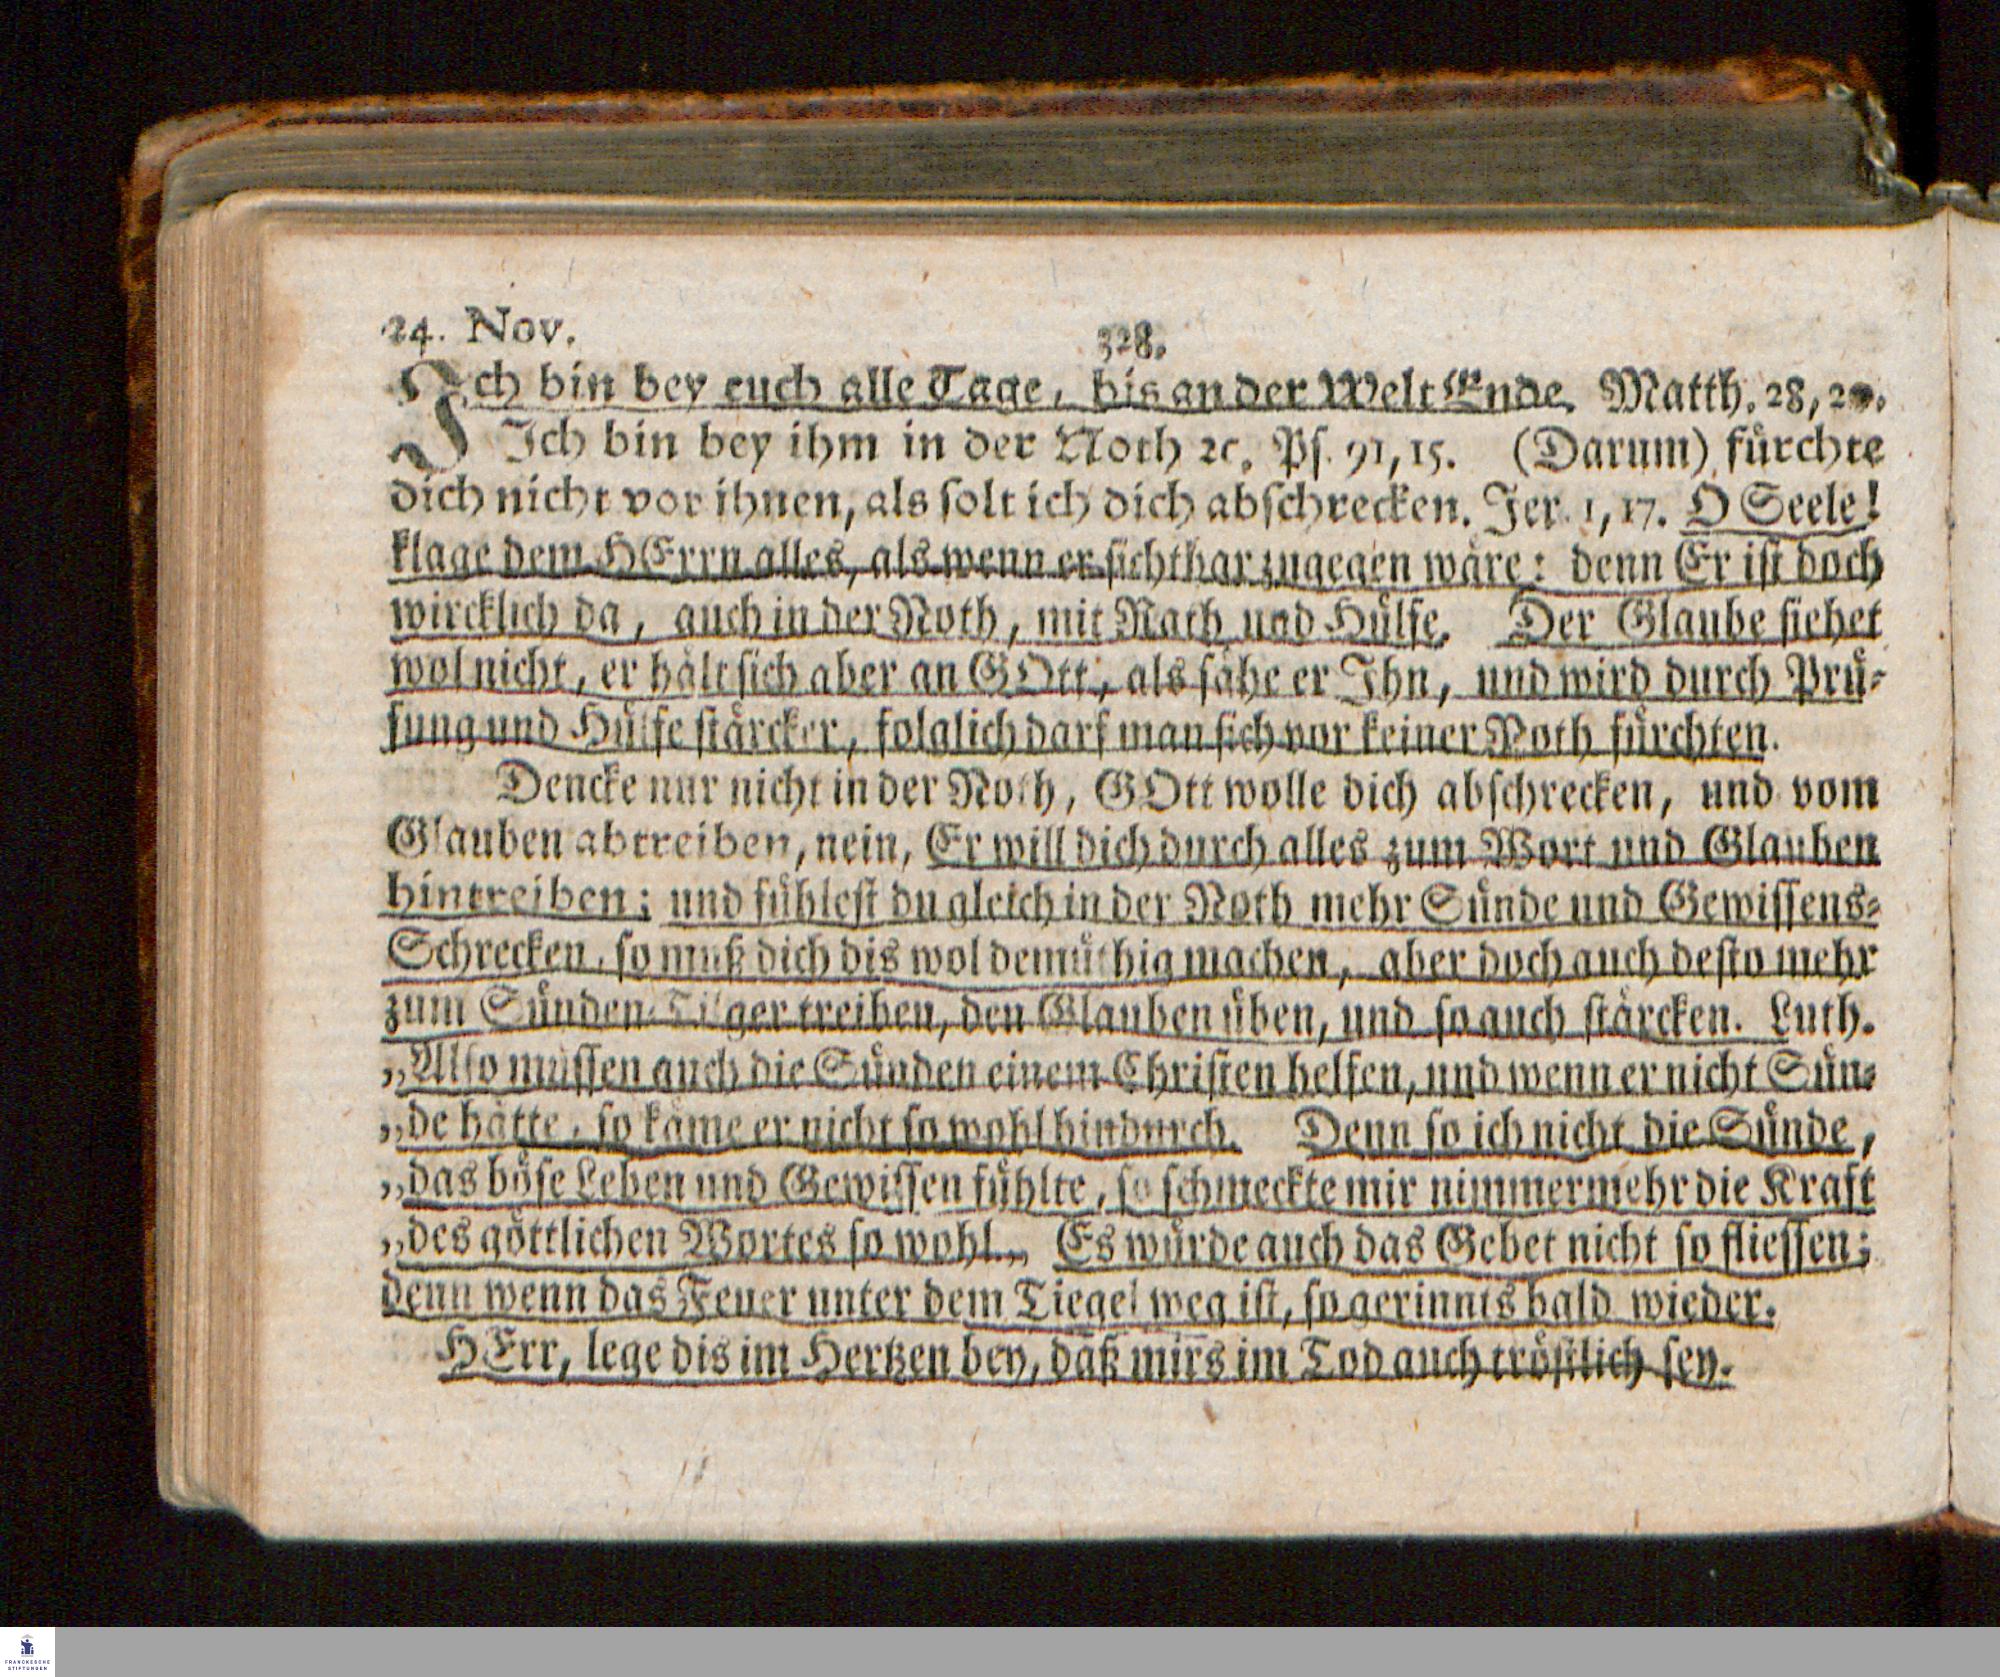 24. Nov. 328.
Ich bin bey euch alle Tage, bis an der Welt Ende. Matth. 28, 20.
Ich bin bey ihm in der Noth ꝛc. Ps. 91, 15. (Darum) fürchte
dich nicht vor ihnen, als solt ich dich abschrecken. Jer. 1, 17. O Seele!
klage dem HErrn alles, als wenn er sichtbar zugegen wäre: denn Er ist doch
wircklich da, auch in der Noth, mit Rath und Hülfe. Der Glaube siehet
wol nicht, er hält sich aber an GOtt, als sähe er Ihn, und wird durch Prü-
fung und Hülfe stärcker, folglich darf man sich vor keiner Noth fürchten.
Dencke nur nicht in der Noth, GOtt wolle dich abschrecken, und vom
Glauben abtreiben, nein, Er will dich durch alles zum Wort und Glauben
hintreiben; und fühlest du gleich in der Noth mehr Sünde und Gewissens-
Schrecken, so muß dich dis wol demüthig machen, aber doch auch desto mehr
zum Sünden-Tilger treiben, den Glauben üben, und so auch stärcken. Luth.
„Also müssen auch die Sünden einem Christen helfen, und wenn er nicht Sün-
„de hätte, so käme er nicht so wohl hindurch. Denn so ich nicht die Sünde,
„das böse Leben und Gewissen fühlte, so schmeckte mir nimmermehr die Kraft
„des göttlichen Wortes so wohl„ Es würde auch das Gebet nicht so fliessen;
denn wenn das Feuer unter dem Tiegel weg ist, so gerinnts bald wieder.
HErr, lege dis im Hertzen bey, daß mirs im Tod auch tröstlich sey.
FRANCKESCHE
STIFTUNGEN